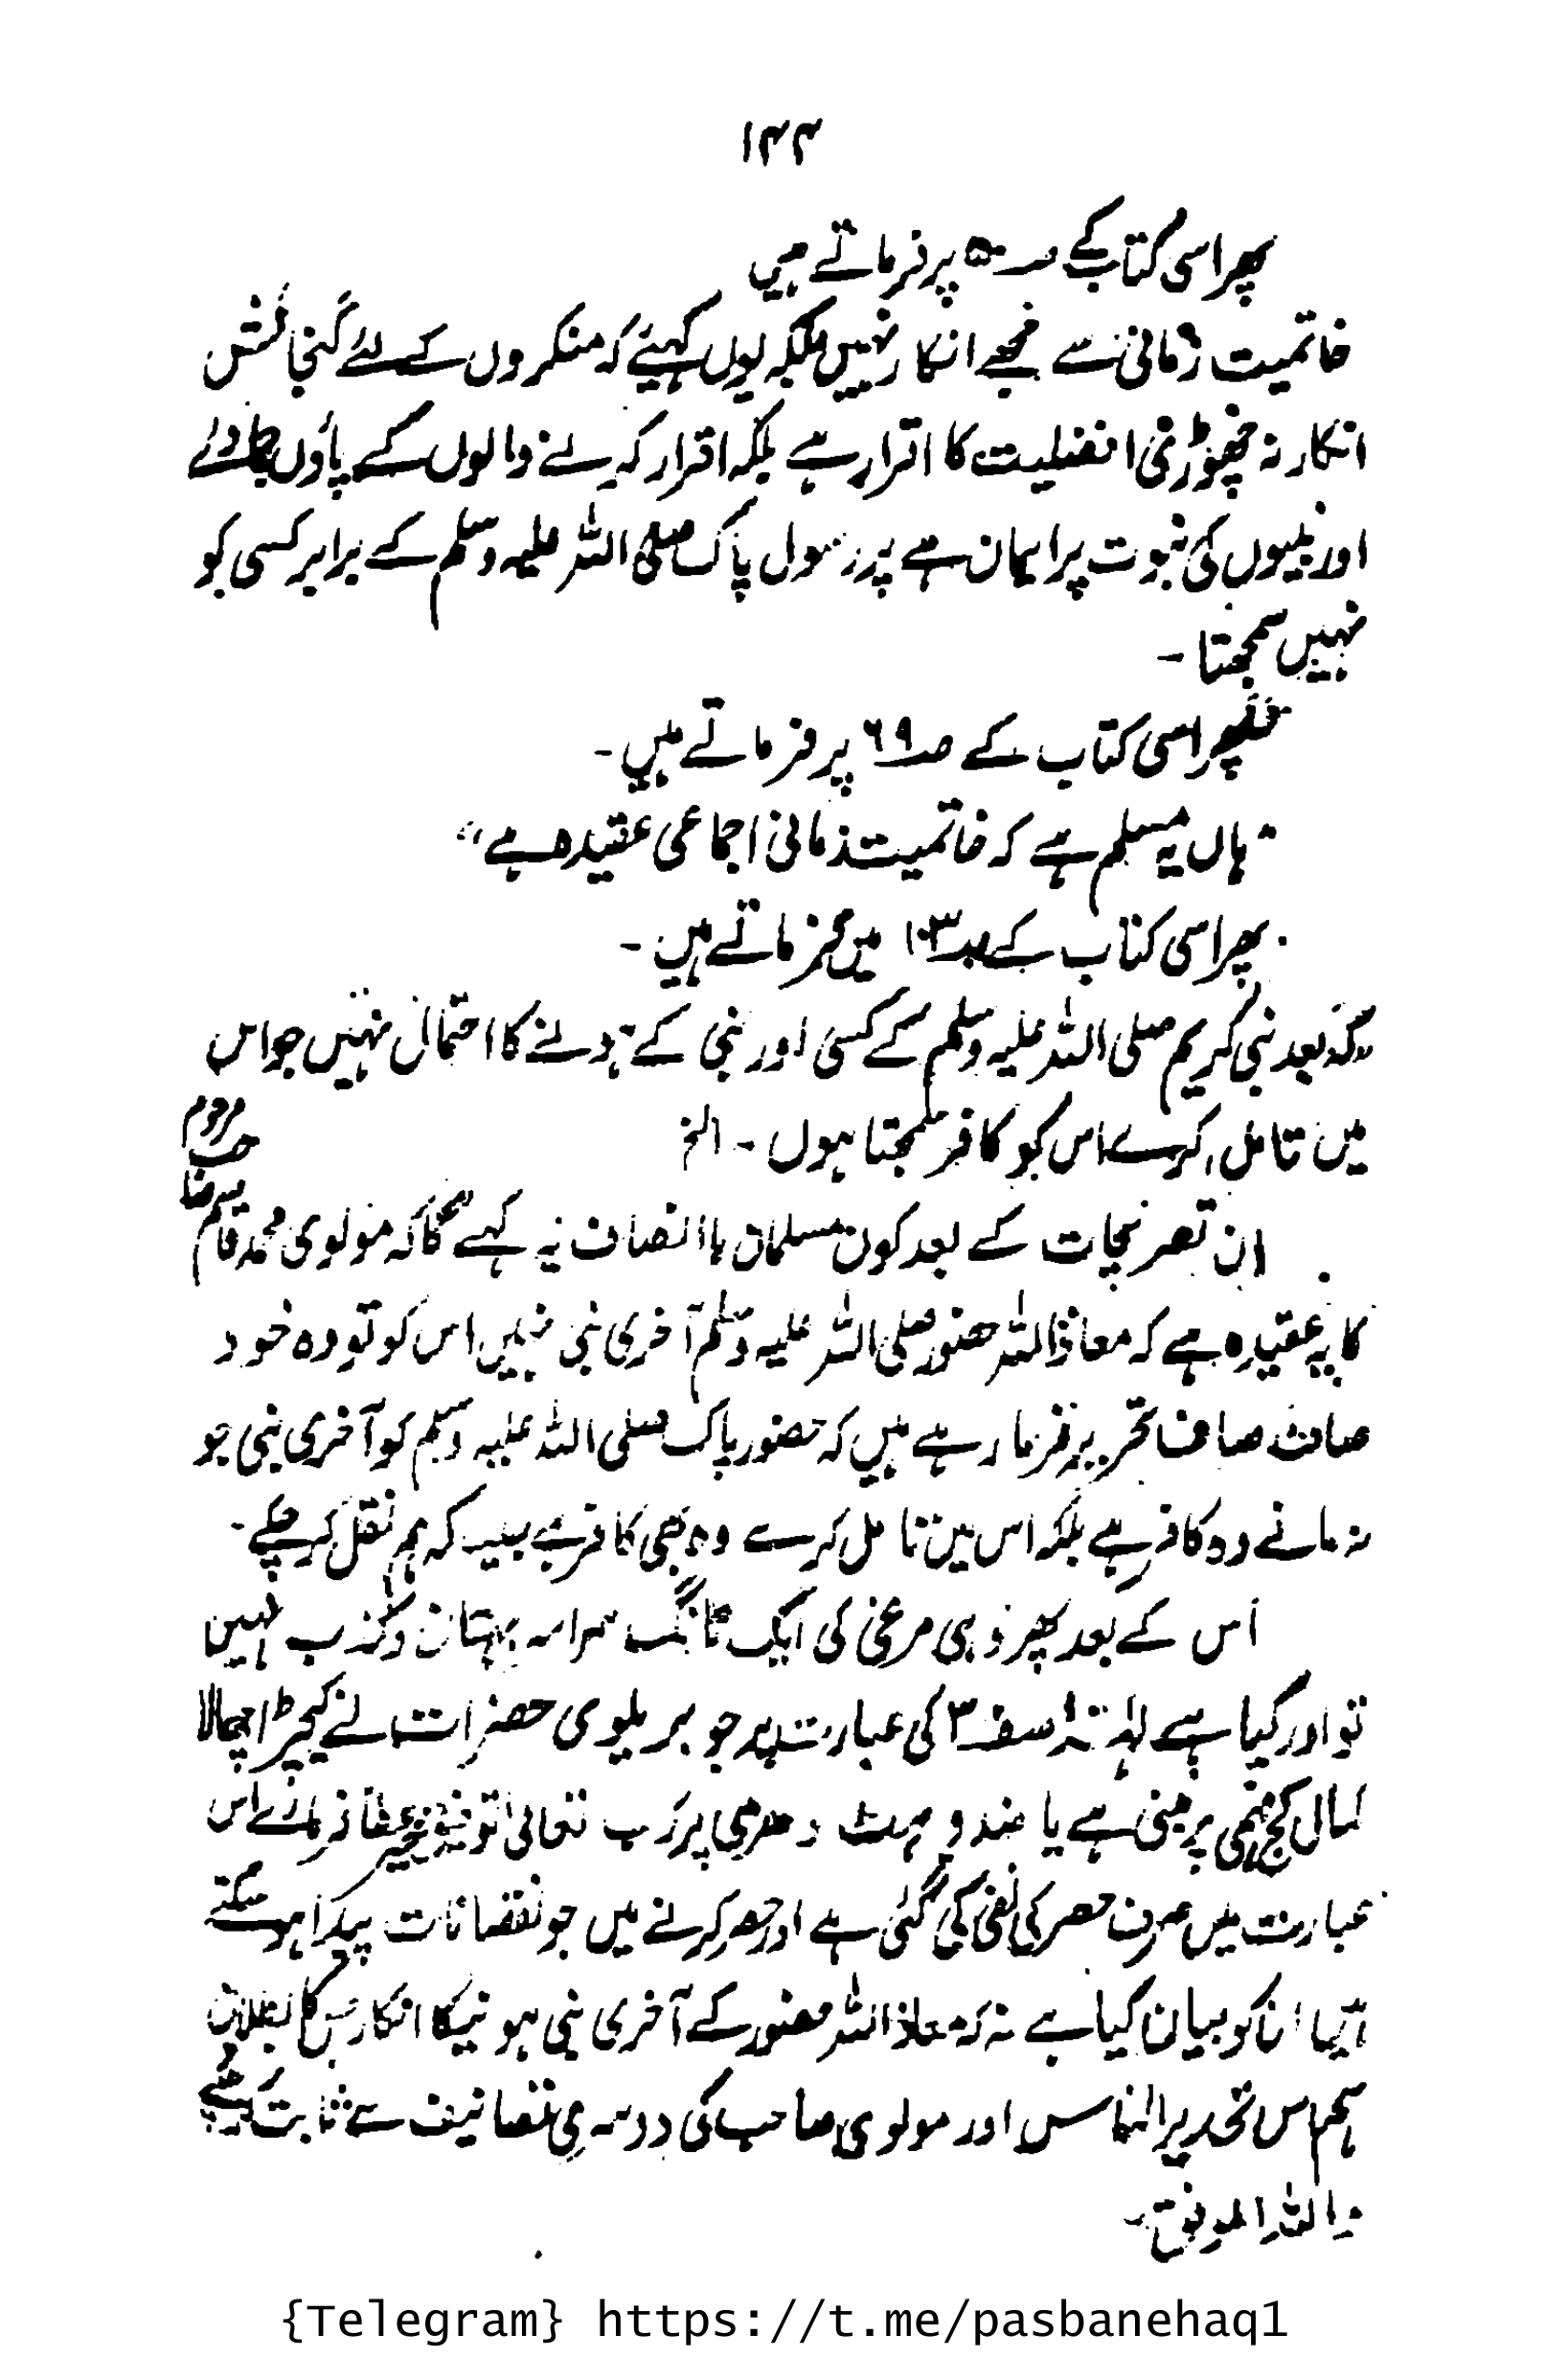 ۱۴۴
پھر اسی کتاب کے صـ۵۰ پر فرماتے ہیں
خاتمیت زمانی سے مجھے انکار نہیں بلکہ یوں کہیئے کہ منکروں کے لئے گنجائش
انکار نہ چھوڑی افضلیت کا اقرار ہے بلکہ اقرار کرنے والوں کے پاؤں جما دئے
اور نبیوں کی نبوت پر ایمان ہے پر رسول پاک صلی اللہ علیہ وسلم کے برابر کسی کو
نہیں سمجھتا -
پھر اسی کتاب کے صـ۶۹ پر فرماتے ہیں -
" ہاں یہ مسلم ہے کہ خاتمیت زمانی اجماعی عقیدہ ہے "
پھر اسی کتاب کے صـ۱۰۳ میں فرماتے ہیں -
" کہ بعد نبی کریم صلی اللہ علیہ وسلم کے کسی اور نبی کے ہونے کا احتمال نہیں جو اس
میں تامل کرے اس کو کافر سمجھتا ہوں - الخ
ان تصریحات کے بعد کون مسلمان باانصاف یہ کہے گا کہ مولوی محمد قاسم صاحب مرحوم
کا یہ عقیدہ ہے کہ معاذاللہ حضور صلی اللہ علیہ وسلم آخری نبی نہیں اس کو تو وہ خود
صاف صاف تحریر فرما رہے ہیں کہ حضور پاک صلی اللہ علیہ وسلم کو آخری نبی جو
نہ مانے وہ کافر ہے بلکہ اس میں تامل کرے وہ بھی کافر ہے جیسا کہ ہم نقل کر چکے -
اس کے بعد پھر وہی مرغی کی ایک ٹانگ سراسر بہتان و کذب نہیں
تو اور کیا ہے لہٰذا اس صفحہ ۳ کی عبارت پر جو بریلوی حضرات نے کیچڑ اچھالا
کمال کج فہمی پر مبنی ہے یا ضد و ہٹ دھرمی پر رب تعالی توفیق خیر عطا فرمائے اس
عبارت میں صرف حصر کی نفی کی گئی ہے اور حصر کرنے میں جو نقصانات پیدا ہو سکتے
ہیں ان کو بیان کیا ہے نہ کہ معاذ اللہ حضور کے آخری نبی ہونیکا انکار جس کا بطلان
ہم اس تحذیر الناس اور مولوی صاحب کی دوسری تصانیف سے ثابت کر چکے
واللہ الموفق -
{Telegram} https://t.me/pasbanehaq1